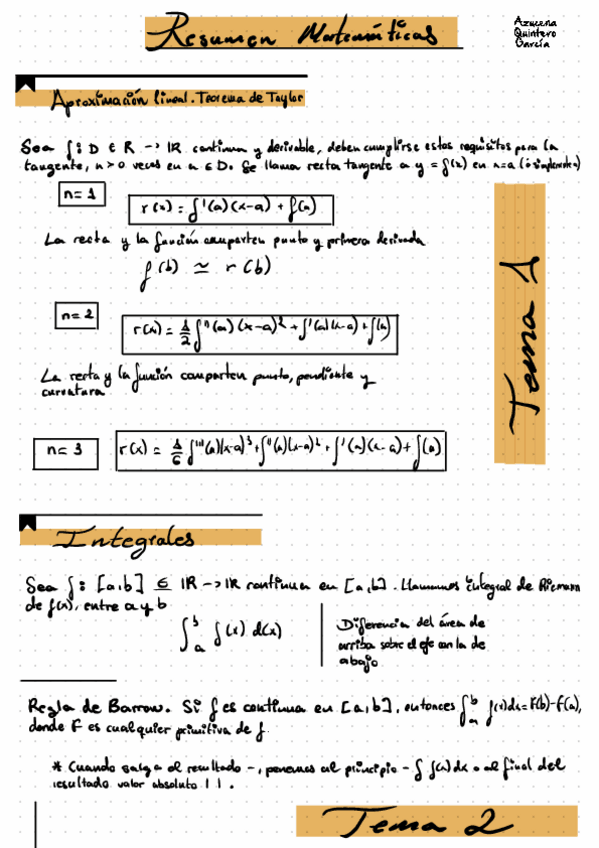 Resumen Matemáticas
Azucena
Quintero
García
Aproximación lineal. Teorema de Taylor
Sea f: D ∈ R → IR continua y derivable, deben cumplirse estos requisitos para la
tangente, n>0 veces en a ∈ D. Se llama recta tangente a y = f(x) en x=a (ó simplemente)
n=1
r(x) = f'(a)(x-a) + f(a)
La recta y la función comparten punto y primera derivada
f(b) ≃ r(b)
n=2
r(x) = 1/2 f''(a)(x-a)² + f'(a)(x-a) + f(a)
La recta y la función comparten punto, pendiente y
curvatura
n=3
r(x) = 1/6 f'''(a)(x-a)³ + f''(a)(x-a)² + f'(a)(x-a) + f(a)
Tema 1
Integrales
Sea f: [a,b] ⊆ IR → IR continua en [a,b]. Llamamos integral de Riemann
de f(x), entre a y b
∫ₐᵇ f(x) d(x)
Diferencia del área de
arriba sobre el eje con la de
abajo
Regla de Barrow. Si f es continua en [a,b], entonces ∫ₐᵇ f(x)dx = F(b)-F(a),
donde F es cualquier primitiva de f.
* Cuando salga el resultado -, ponemos al principio - ∫ f(x) dx o al final del
resultado valor absoluto | |.
Tema 2